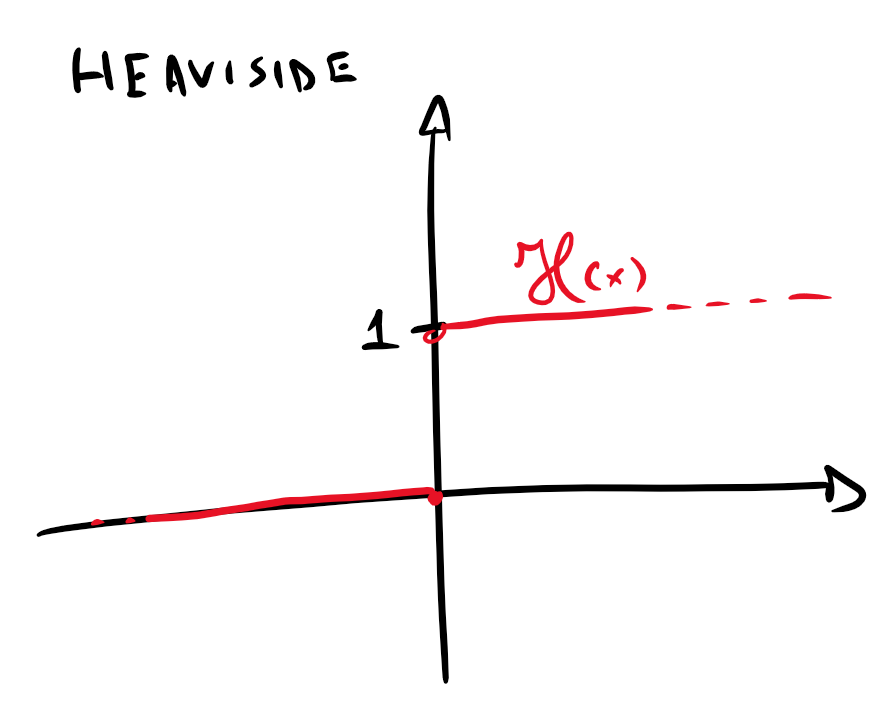 HEAVISIDE
H(x)
1